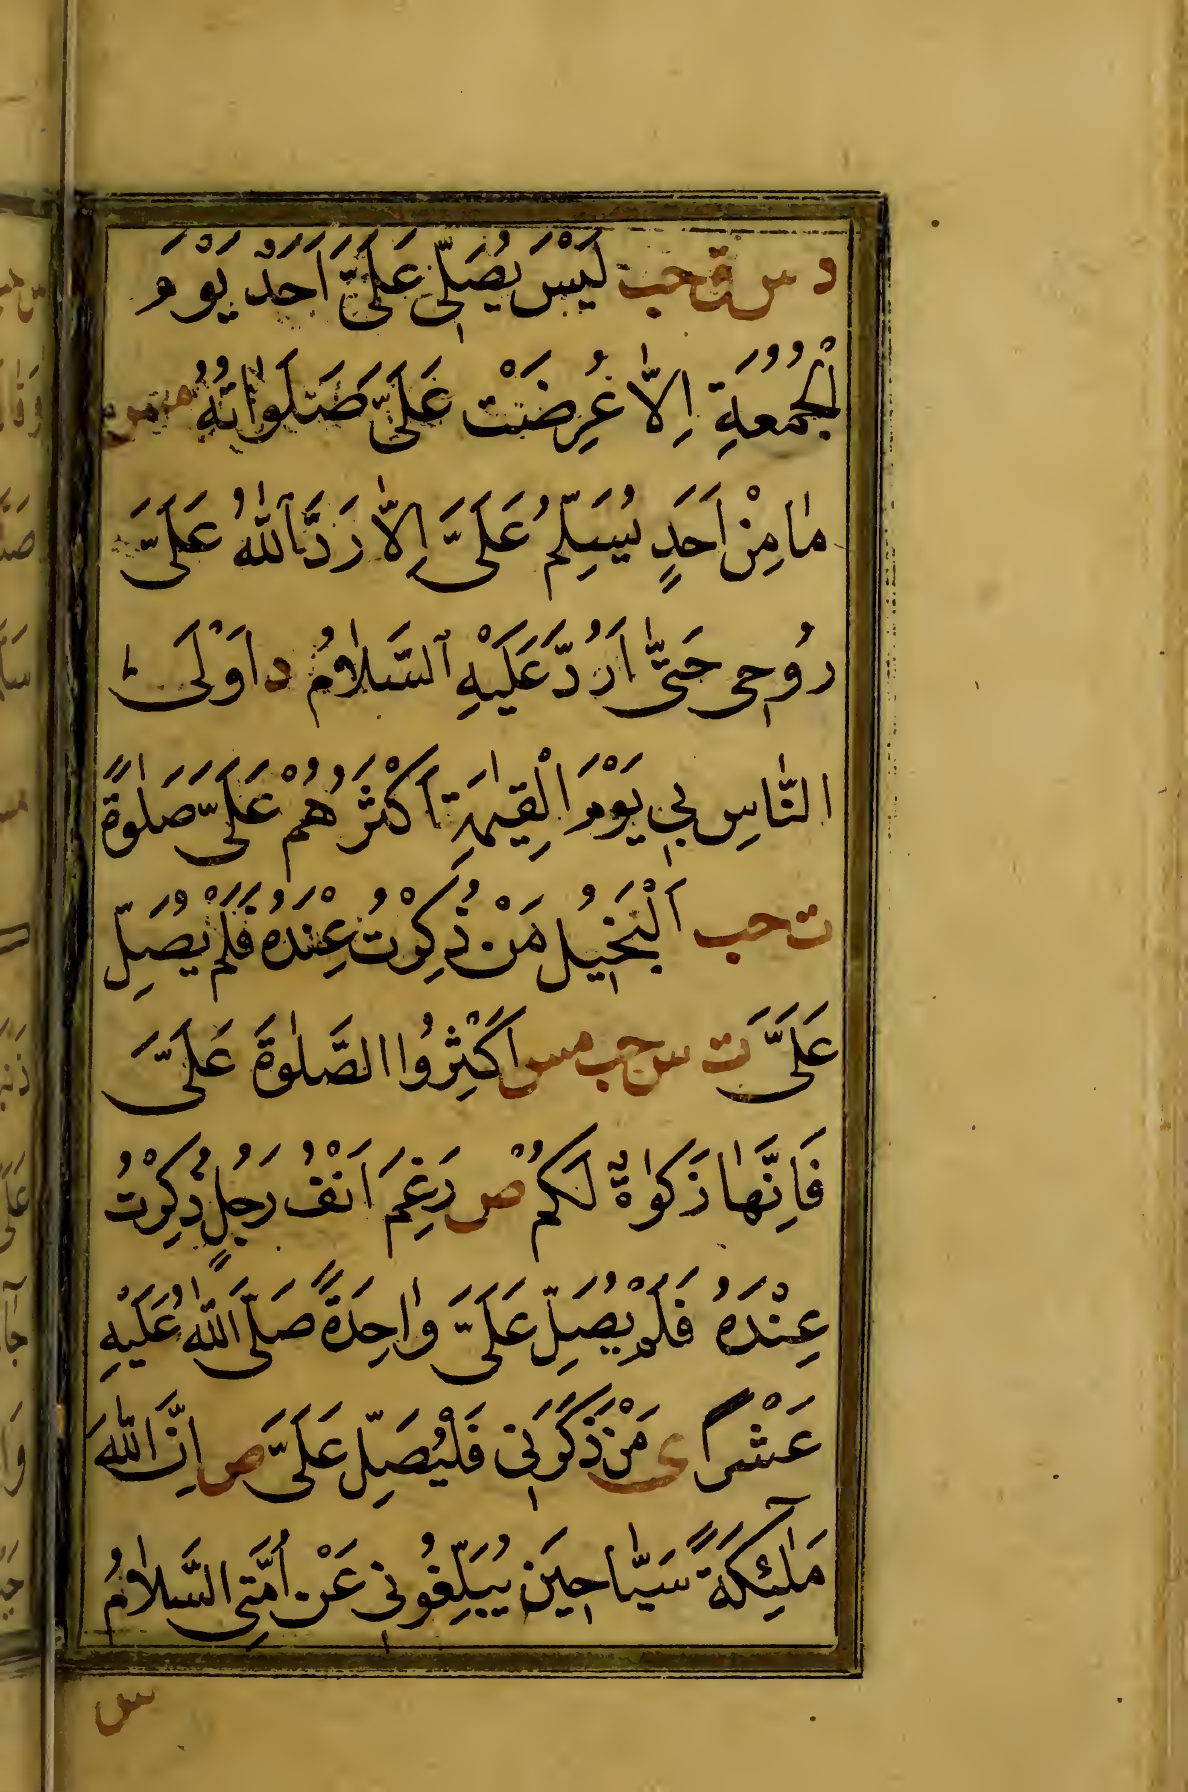 د س ق حب لَيْسَ يُصَلِّي عَلَيَّ اَحَدٌ يَوْمَ
الْجُمُعَةِ اِلاّٰ عُرِضَتْ عَلَيَّ صَلَوٰاتُهُ مس
مٰا مِنْ اَحَدٍ يُسَلِّمُ عَلَيَّ اِلاّٰ رَدَّ اللّٰهُ عَلَيَّ
رُوحِي حَتّٰى اَرُدَّ عَلَيْهِ السَّلاٰمُ د اَوْلَى
النّٰاسِ بِي يَوْمَ الْقِيٰمَةِ اَكْثَرُهُمْ عَلَيَّ صَلٰوةً
ت حب اَلْبَخِيلُ مَنْ ذُكِرْتُ عِنْدَهُ فَلَمْ يُصَلِّ
عَلَيَّ ت س حب مس اَكْثِرُوا الصَّلٰوةَ عَلَيَّ
فَاِنَّهٰا زَكٰوةٌ لَكُمْ ص رَغِمَ اَنْفُ رَجُلٍ ذُكِرْتُ
عِنْدَهُ فَلَمْ يُصَلِّ عَلَيَّ وٰاحِدَةً صَلَّى اللّٰهُ عَلَيْهِ
عَشْراً ى مَنْ ذَكَرَنِي فَلْيُصَلِّ عَلَيَّ ص اِنَّ اللّٰهَ
مَلٰٓئِكَةً سَيّٰاحِينَ يُبَلِّغُونِي عَنْ اُمَّتِي السَّلاٰمُ
س